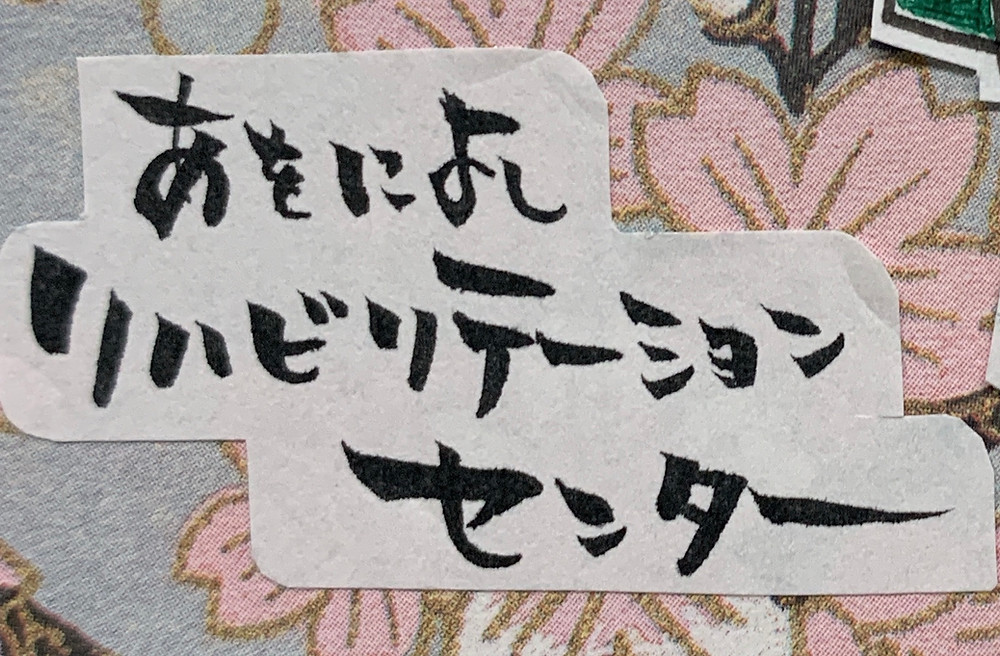 あをによし
リハビリテーション
センター